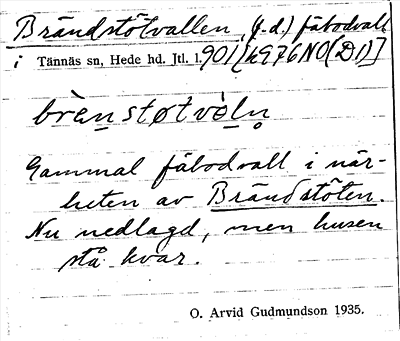 Brändstötvallen (f.d.) fäbodvall
i Tännäs sn, Hede hd. Jtl. l. 901 [4976NO(D1)]
brènstøtvòln̥
Gammal fäbodvall i när-
heten av Brändstöten.
Nu nedlagd, men husen
stå kvar.
O. Arvid Gudmundson 1935.